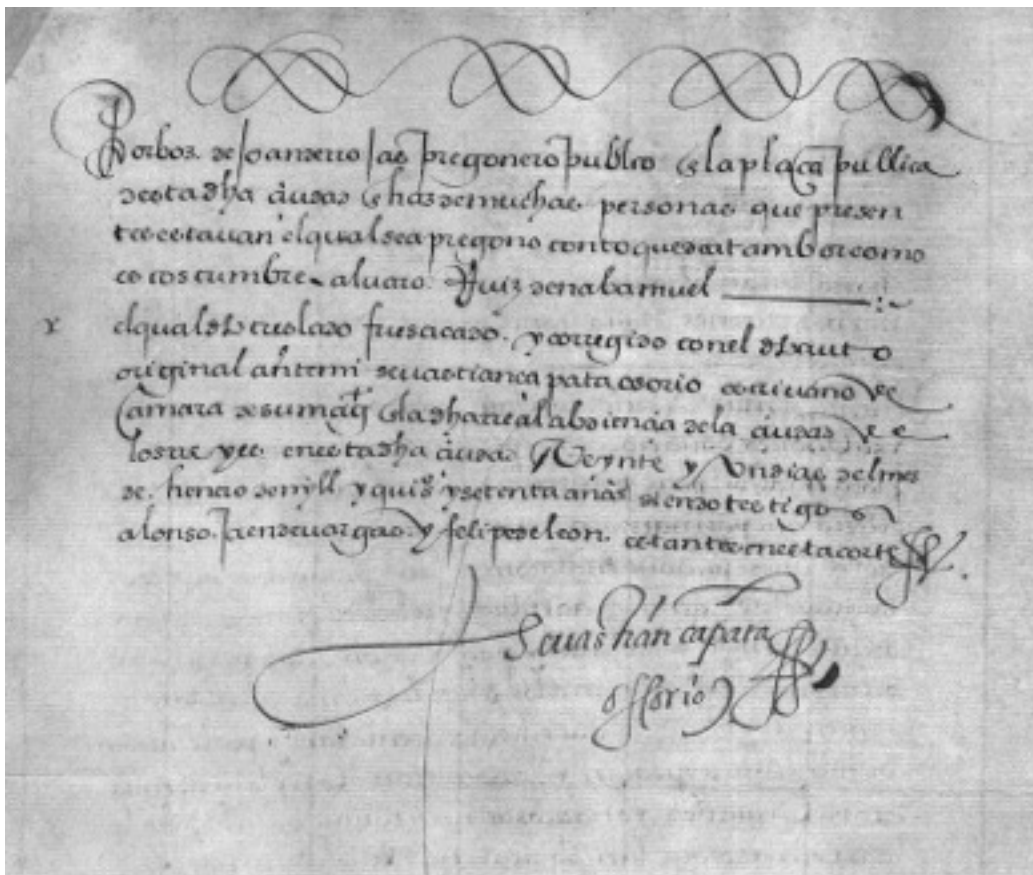 Por boz de Joan derrojas pregonero publico en la plaça publica
desta dha çiudad en haz de muchas personas que presen
tes estavan el qual se apregono con toque de atambor como
es costumbre alvaro Ruiz de nabamuel
el qual dho treslado fue sacado y corregido con el dho auto
original ante mi sevastian çapata osorio escrivano de
Camara de su magt en la dha real abdiençia de la çiudad de
los reyes en esta dha çiudad Veynte y Un dias del mes
de henero de mill y quis y setenta años siendo testigos
alonso de vargas y felipe de leon estantes en esta corte
Sevastian çapata
ossorio